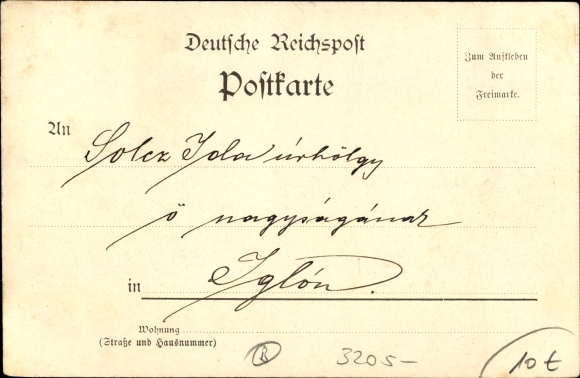 Deutsche Reichspost
Postkarte
Zum Aufkleben
der
Freimarke.
An
Solcz Ida úrhölgy
ő nagyságának
in Iglón.
Wohnung
(Straße und Hausnummer)
R 3205- 10t